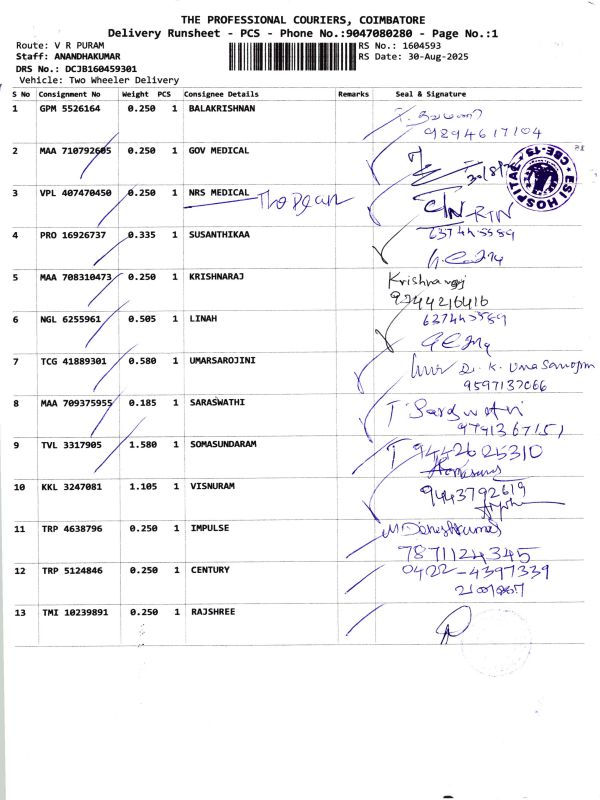 THE PROFESSIONAL COURIERS, COIMBATORE
Delivery Runsheet - PCS - Phone No.:9047080280 - Page No.:1
Route: V R PURAM RS No.: 1604593
Staff: ANANDHAKUMAR RS Date: 30-Aug-2025
DRS No.: DCJB160459301
Vehicle: Two Wheeler Delivery
S No Consignment No Weight PCS Consignee Details Remarks Seal & Signature
1 GPM 5526164 0.250 1 BALAKRISHNAN
9294617104
2 MAA 710792605 0.250 1 GOV MEDICAL
ESI HOSPITAL CBE-15
3 VPL 407470450 0.250 1 NRS MEDICAL
4 PRO 16926737 0.335 1 SUSANTHIKAA
5 MAA 708310473 0.250 1 KRISHNARAJ Krishnaraj
9244216416
6 NGL 6255961 0.505 1 LINAH
7 TCG 41889301 0.580 1 UMARSAROJINI
9597137066
8 MAA 709375955 0.185 1 SARASWATHI T Saraswathi
9741367151
9 TVL 3317905 1.580 1 SOMASUNDARAM 9442625310
10 KKL 3247081 1.105 1 VISNURAM 9443792619
11 TRP 4638796 0.250 1 IMPULSE
7871124345
12 TRP 5124846 0.250 1 CENTURY 0422-4397339
13 TMI 10239891 0.250 1 RAJSHREE